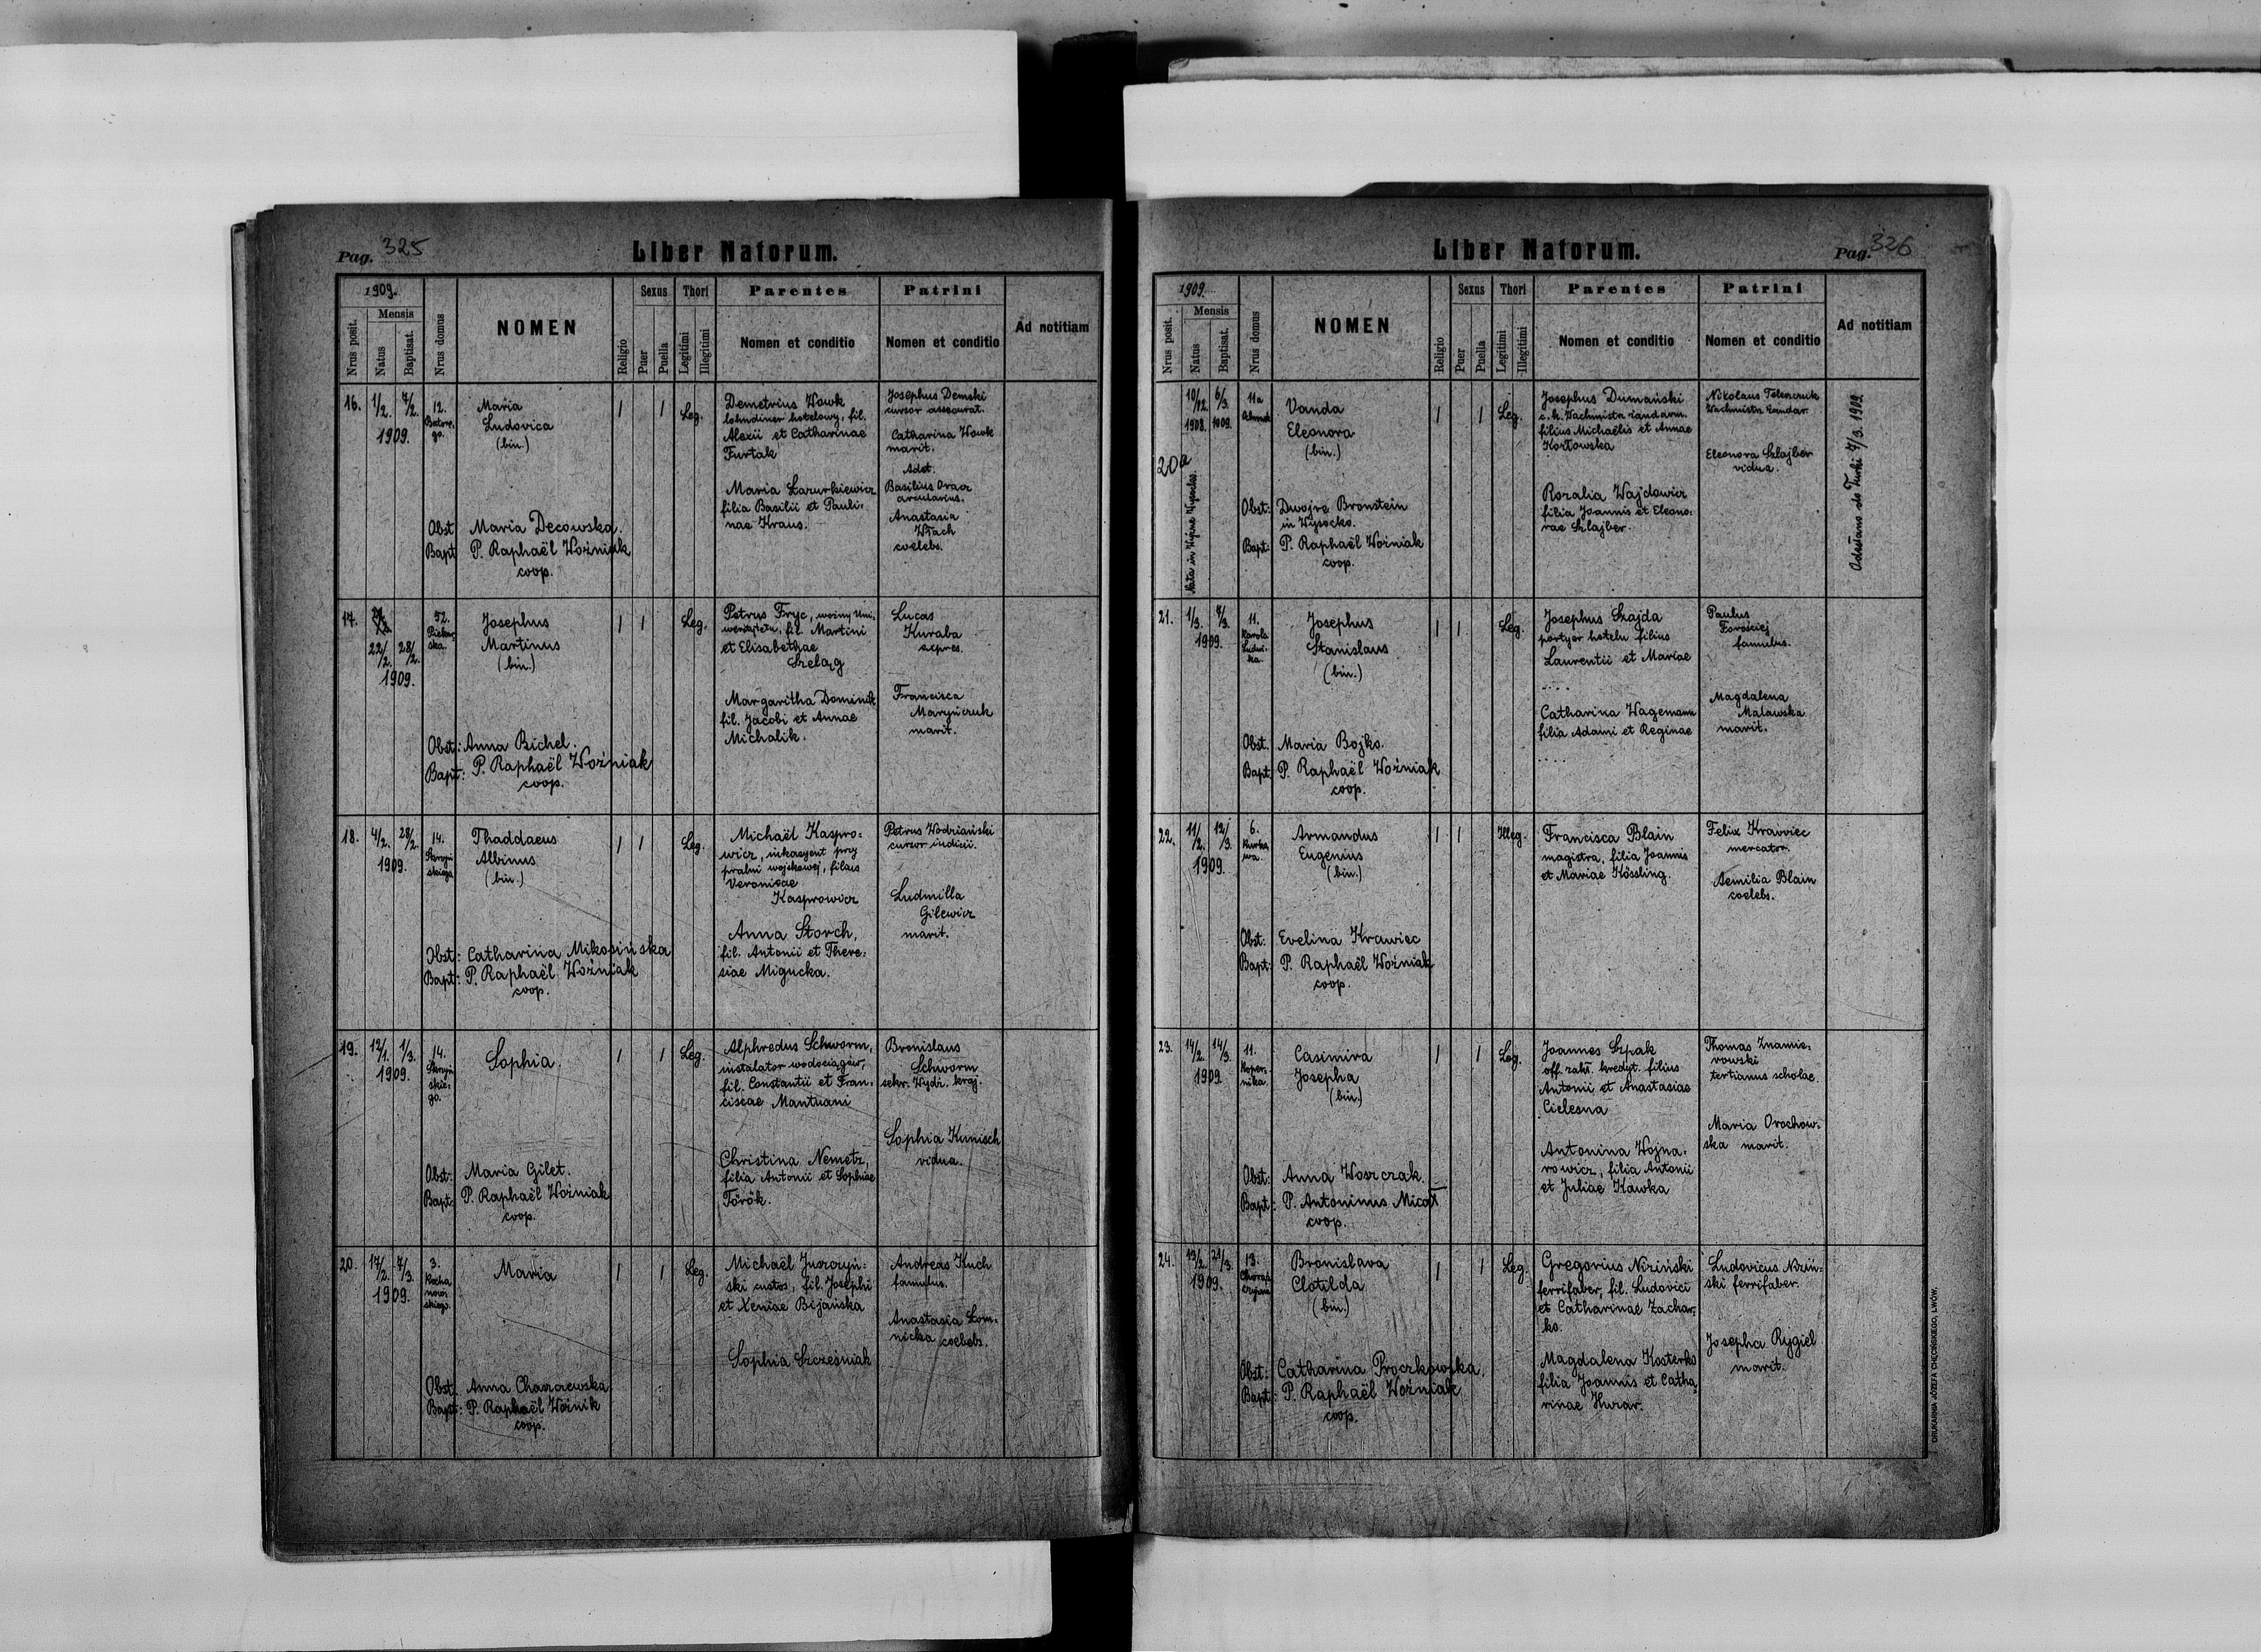 Pag. 325
Liber Natorum.
1909.
Nrus posit.
Mensis
Natus
Baptisat.
Nrus domus
NOMEN
Religio
Sexus
Puer
Puella
Thori
Legitimi
Illegitimi
Parentes
Nomen et conditio
Patrini
Nomen et conditio
Ad notitiam
16. 1/2. 7/2. 1909.
12. Batore.
go.
Maria
Ludovica
(bin.)
Obst Maria Decowska.
Bapt P. Raphaël Woźniak
coop.
1 1 Leg.
Demetrius Wowk
lohndiner hotelowy, fil.
Alexii et Catharinae
Furtak
Maria Łazurkiewicz
filia Basilii et Pauli-
nae Kraus.
Josephus Demski
cursor assecurat.
Catharina Wowk
marit.
Adst.
Basilius Oracz
arcularius.
Anastasia
Włach
coelebs.
17. 22/2. 28/2. 1909.
52.
Piekar.
ska.
Josephus
Martinus
(bin.)
Obst.: Anna Bichel.
Bapt: P. Raphaël Woźniak
coop.
1 1 Leg.
Petrus Fryc, woźny Uni.
wersytetu, fil. Martini
et Elisabethae
Szeląg
Margaritha Dominik
fil. Jacobi et Annae
Michalik.
Lucas
Kuraba
Francisca
Maryńczuk
marit.
18. 4/2. 28/2. 1909.
14.
Skrzyń
skiego
Thaddaeus
Albinus
(bin.)
Obst: Catharina Mikosińska
Bapt: P. Raphaël Woźniak
coop.
1 1 Leg.
Michaël Kaspro:
wicz, inkasyent przy
pralni wojskowej, filius
Veronicae
Kasprowicz
Anna Storch,
fil. Antonii et There:
siae Migucka.
Petrus Wodziański
cursor indicii.
Ludmilla
Gilewicz
marit.
19. 12/1. 1/3. 1909.
14.
Skrzyń
skie-
go.
Sophia.
Obst: Maria Gilet.
Bapt: P. Raphaël Woźniak
coop.
1 1 Leg.
Alphredus Schworm,
instalator wodociągów,
fil. Constantii et Fran-
ciscae Mantuani
Christina Nemetz,
filia Antonii et Sophiae
Török.
Bronislaus
Schworm
sekr. Wydz. kraj.
Sophia Kunisch
vidua.
20. 17/2. 7/3. 1909.
3.
Kocha
now
skiego.
Maria
Obst. Anna Charzewska
Bapt: P. Raphaël Woźnik
coop.
1 1 Leg.
Michaël Juszczyń:
ski custos, fil. Josephi
et Xeniae Bijańska
Sophia Szcześniak
Andreas Kuch
famulus.
Anastasia Łom-
nicka coelebs.
Liber Natorum.
Pag. 326
1909.
Nrus posit.
Mensis
Natus
Baptisat.
Nrus domus
NOMEN
Religio
Sexus
Puer
Puella
Thori
Legitimi
Illegitimi
Parentes
Nomen et conditio
Patrini
Nomen et conditio
Ad notitiam
20a
10/12. 1908. 6/3. 1909.
11a
Nata in
Vanda
Eleonora
(bin.)
Obst: Dwojre Bronstein
in Wysocko.
Bapt: P. Raphaël Woźniak
coop.
1 1 Leg.
Josephus Dumański
c. k. Wachmistrz żandarm.
filius Michaëlis et Annae
Kozłowska
Rozalia Wajdowicz
filia Joannis et Eleono-
rae Szlajber.
Nikolaus Teleszczuk
Wachmistrz żandar.
Eleonora Szlajber
vidua.
Odesłano do Turki 7/3. 1909.
21. 1/3. 7/3. 1909.
11.
Karola
Ludwi-
ka.
Josephus
Stanislaus
(bin.)
Obst. Maria Bojko.
Bapt. P. Raphaël Woźniak
coop.
1 1 Leg.
Josephus Szajda
portyer hotelu filius
Laurentii et Mariae
....
Catharina Wagemann
filia Adami et Reginae
....
Paulus
Zorościej
famulus.
Magdalena
Malawska
marit.
22. 11/2. 12/3. 1909.
6.
Kurko
wa.
Armandus
Eugenius
(bin.)
Obst: Evelina Krawiec
Bapt: P. Raphaël Woźniak
coop.
1 1 Illeg.
Francisca Blain
magistra, filia Joannis
et Mariae Kössling.
Felix Krawiec
mercator.
Aemilia Blain
coelebs.
23. 14/2. 14/3. 1909
11.
Koper-
nika.
Casimira
Josepha
(bin.)
Obst: Anna Woszczak.
Bapt: P. Antoninus Micał
coop.
1 1 Leg.
Joannes Szpak
off. zakł. kredyt. filius
Antonii et Anastasiae
Cielesna
Antonina Wojna-
rowicz, filia Antonii
et Juliae Kawka
Thomas Znamie-
rowski
tertianus scholae.
Maria Orochow-
ska marit.
24. 13/2. 21/3. 1909.
13.
Bronislava
Clotilda
(bin.)
Obst: Catharina Proczkowska.
Bapt: P. Raphaël Woźniak
coop.
1 1 Leg.
Gregorius Niziński
ferrifaber, fil. Ludovici
et Catharinae Zachar-
ko.
Magdalena Kosterko
filia Joannis et Catha
rinae Hurar.
Ludovicus Niziń-
ski ferrifaber.
Josepha Rygiel
marit.
DRUKARNIA JÓZEFA CHĘCIŃSKIEGO, LWÓW.